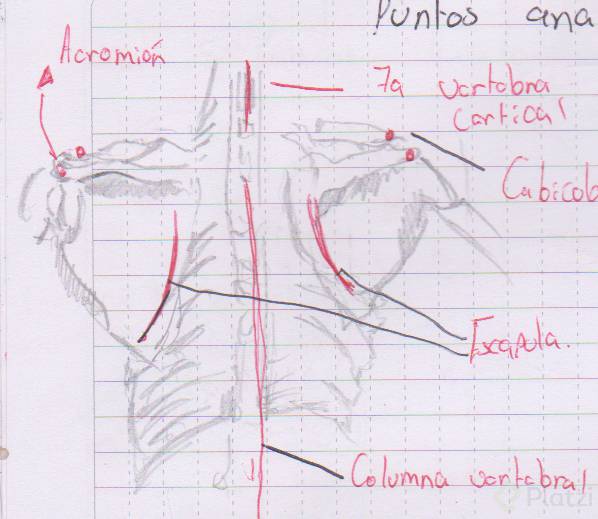 Puntos ana
Acromión
7a vertebra
Cervical
Escapula.
Columna vertebral
Platzi